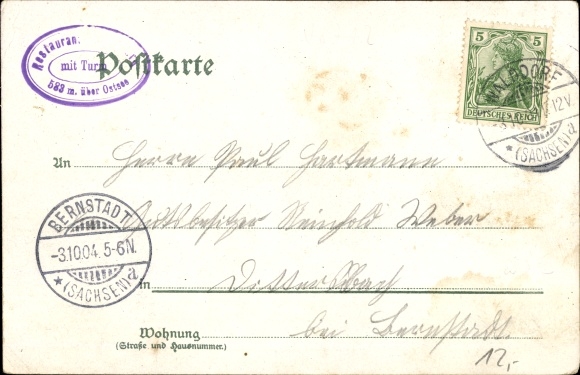 Restaurant
mit Turm
583 m. über Ostsee
Postkarte
5 5
DEUTSCHES REICH
WALDDORF
12V.
* (SACHSEN) a
An Herrn Paul Hartmann
Gutsbesitzer Reinhold Weber
BERNSTADT
-3.10.04. 5-6N.
* (SACHSEN) a
in Dittersbach
bei Bernstadt.
Wohnung
(Straße und Hausnummer.)
12,-